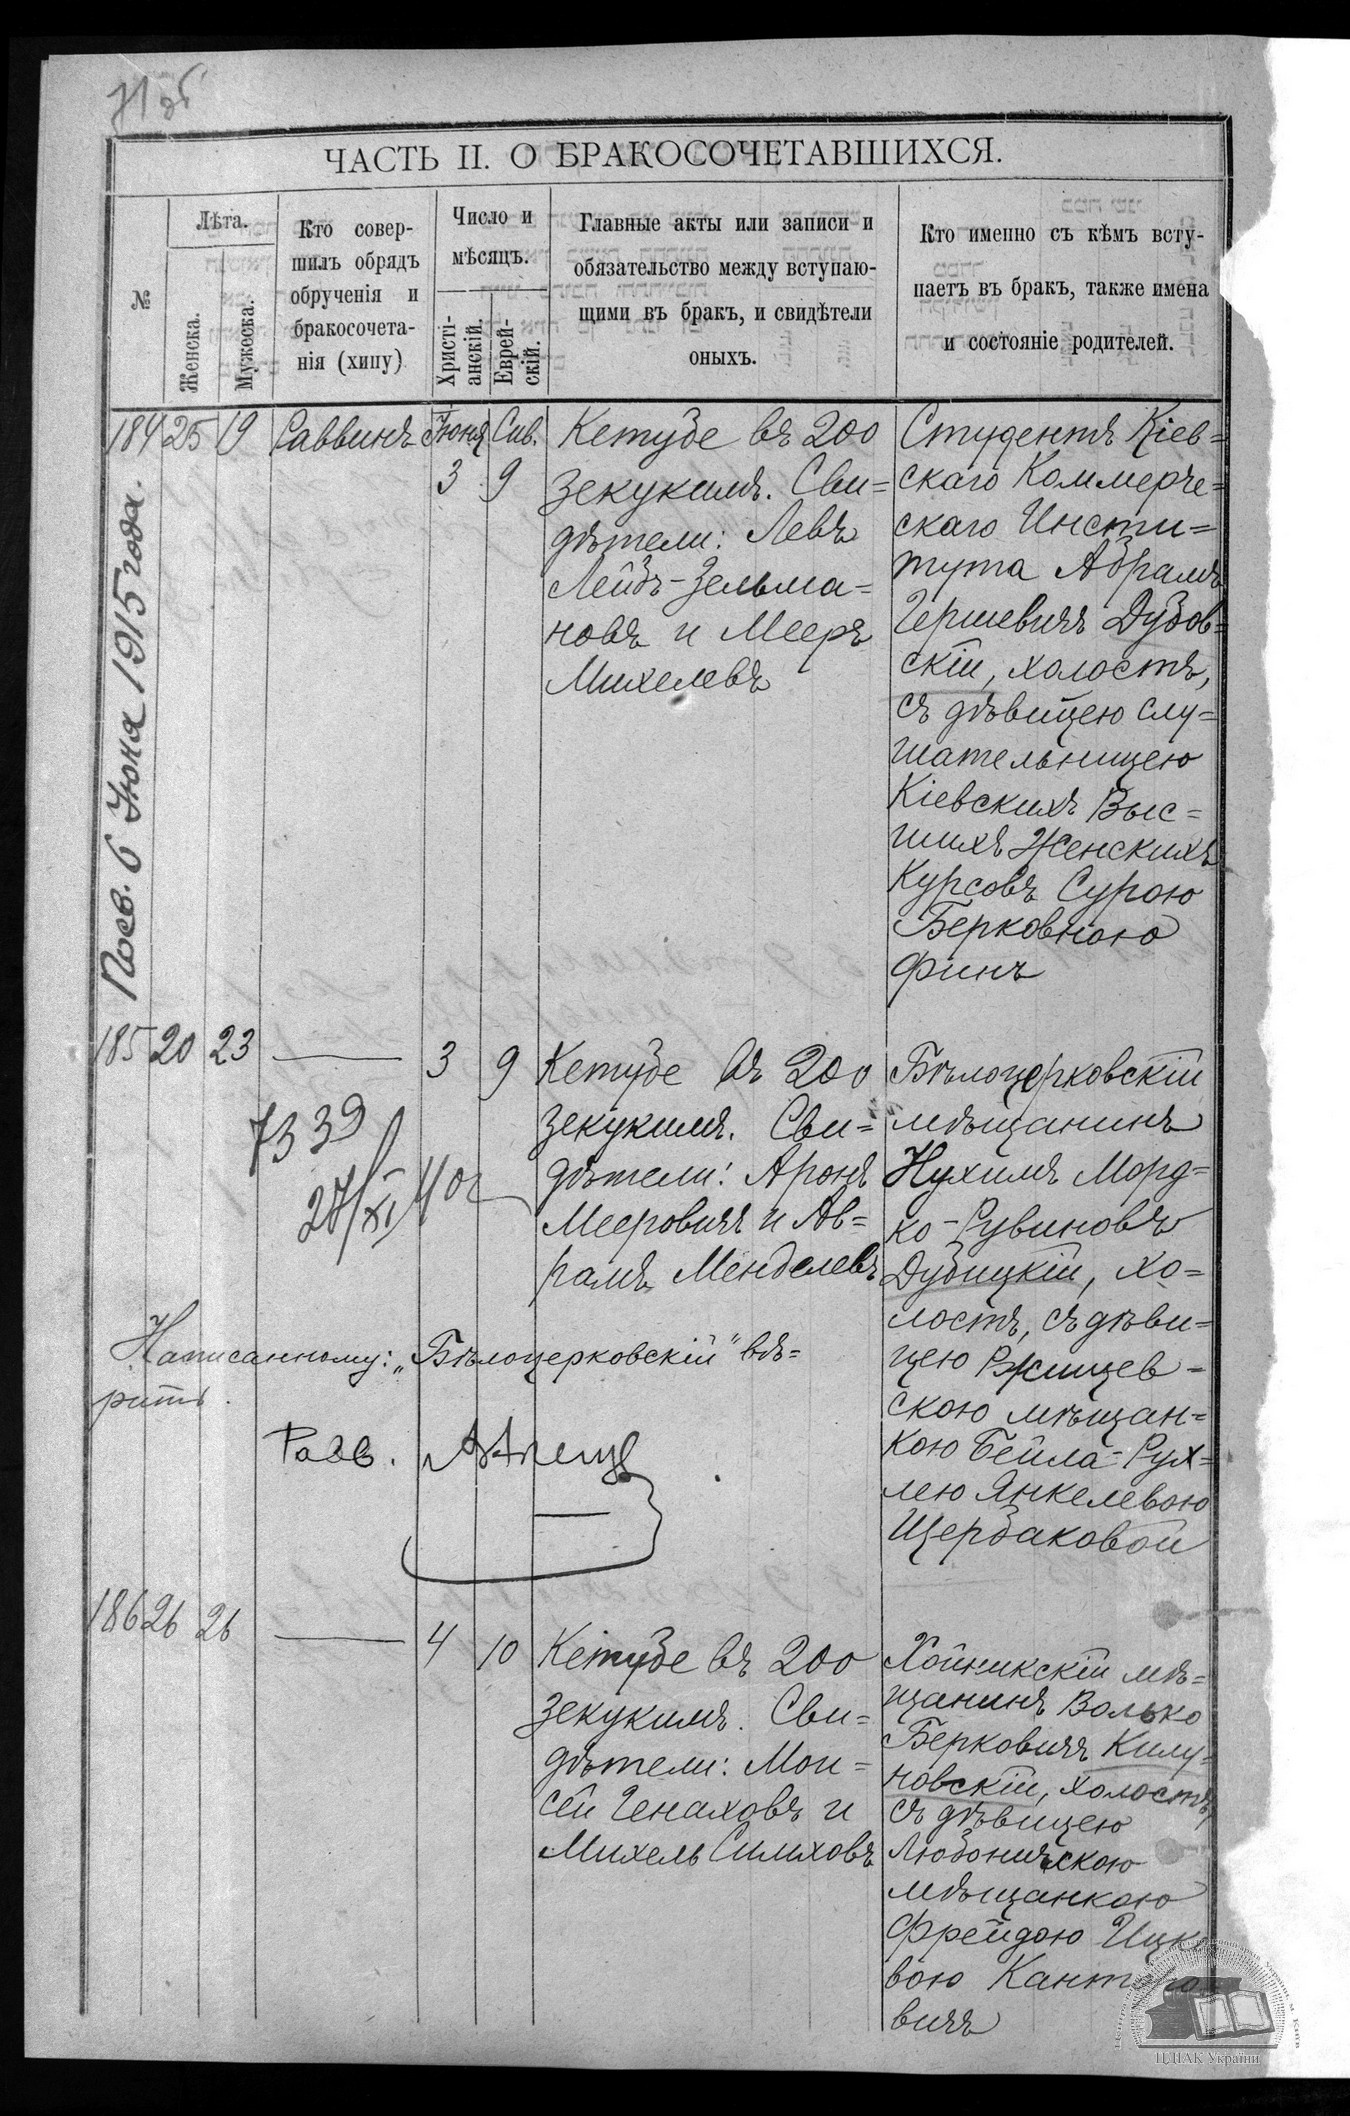 71 об
ЧАСТЬ II. О БРАКОСОЧЕТАВШИХСЯ.
№
Лѣта.
Женска.
Мужеска.
Кто совер-
шилъ обрядъ
обрученія и
бракосочета-
нія (хипу)
Число и
мѣсяцъ.
Христі-
анскій.
Еврей-
скій.
Главные акты или записи и
обязательство между вступаю-
щими въ бракъ, и свидѣтели
оныхъ.
Кто именно съ кѣмъ всту-
паетъ въ бракъ, также имена
и состояніе родителей.
Пов. 6 Іюня 1915 года.
184 25 19 Саввинъ Іюня 3 Сив. 9
Кетубе въ 200
зекукимъ. Сви=
дѣтели: Левъ
Лейбъ-Зельма=
новъ и Мееръ
Михелевъ
Студентъ Кіев=
скаго Коммерче=
скаго Инсти=
тута Абрамъ
Гершевичъ Дубов=
скій, холостъ,
съ дѣвицею слу=
шательницею
Кіевскихъ Выс=
шихъ Женскихъ
Курсовъ Сурою
Берковною
Финъ
185 20 23 — 3 9
7339
27/XI
Кетубе въ 200
зекукимъ. Сви=
дѣтели: Аронъ
Мееровичъ и Ав=
рамъ Менделевъ
Бѣлоцерковскій
мѣщанинъ
Нухимъ Морд=
ко-Рувиновъ
Дубицкій, хо=
лостъ, съ дѣви=
цею Ржищев=
скою мѣщан=
кою Бейла-Рух=
лею Янкелевою
Щербаковой
Написанному: „Бѣлоцерковскій" вѣ=
рить.
Равв.
186 26 26 — 4 10
Кетубе въ 200
зекукимъ. Сви=
дѣтели: Мои=
сей Генаховъ и
Михель Симховъ
Хойникскій мѣ=
щанинъ Волько
Берковичъ Килу=
новскій, холостъ,
съ дѣвицею
Любоничскою
мѣщанкою
Фрейдою Ицко
вою Кантеро
вичъ
ЦДІАК України